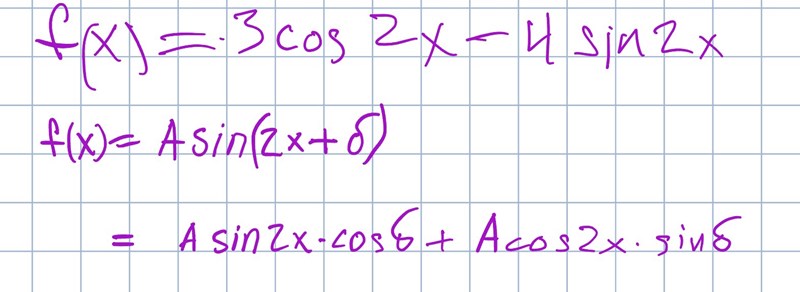 f(x) = 3 cos 2x - 4 sin 2x
f(x) = A sin(2x + δ)
= A sin2x · cosδ + A cos2x · sinδ